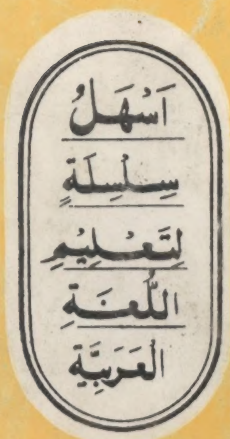 اَسْهَلُ
سِلْسِلَةٍ
لِتَعْلِيْمِ
اللُّغَةِ
الْعَرَبِيَّةِ